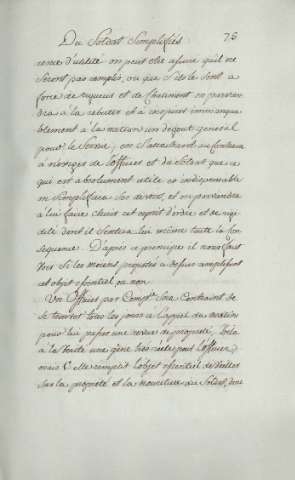 Du Soldat Simplifiés 75
rence d'utilité on peut etre assuré qu'ils ne
seront pas remplis, ou que s'ils le sont a
force de rigueur et de chatiment on parvien
dra a la rebuter et à inspirer immanqua
blement à la nation un dégout general
pour le service, en s'attachant au contraire
à n'exiger de l'officier et du Soldat que ce
qui est absolument utile et indispensable
on simplifiera ses devoirs, et on parviendra
à lui faire cherir cet esprit d'ordre et de régu
dont il sentira lui même toute la con
sequence. D'après ce principe il nous faut
voir si les moiens proposés a dessus remplissent
cet objet essentiel ou non.
Un officier par Comp.ie sera Contraint de
se trouver tous les jours a l'appel du matin
pour lui passer une revue de propreté, voila
à la verité une gêne très réelle pour l'officier,
mais elle remplit l'objet essentiel de veiller
sur la propreté et la nourriture du Soldat, deux